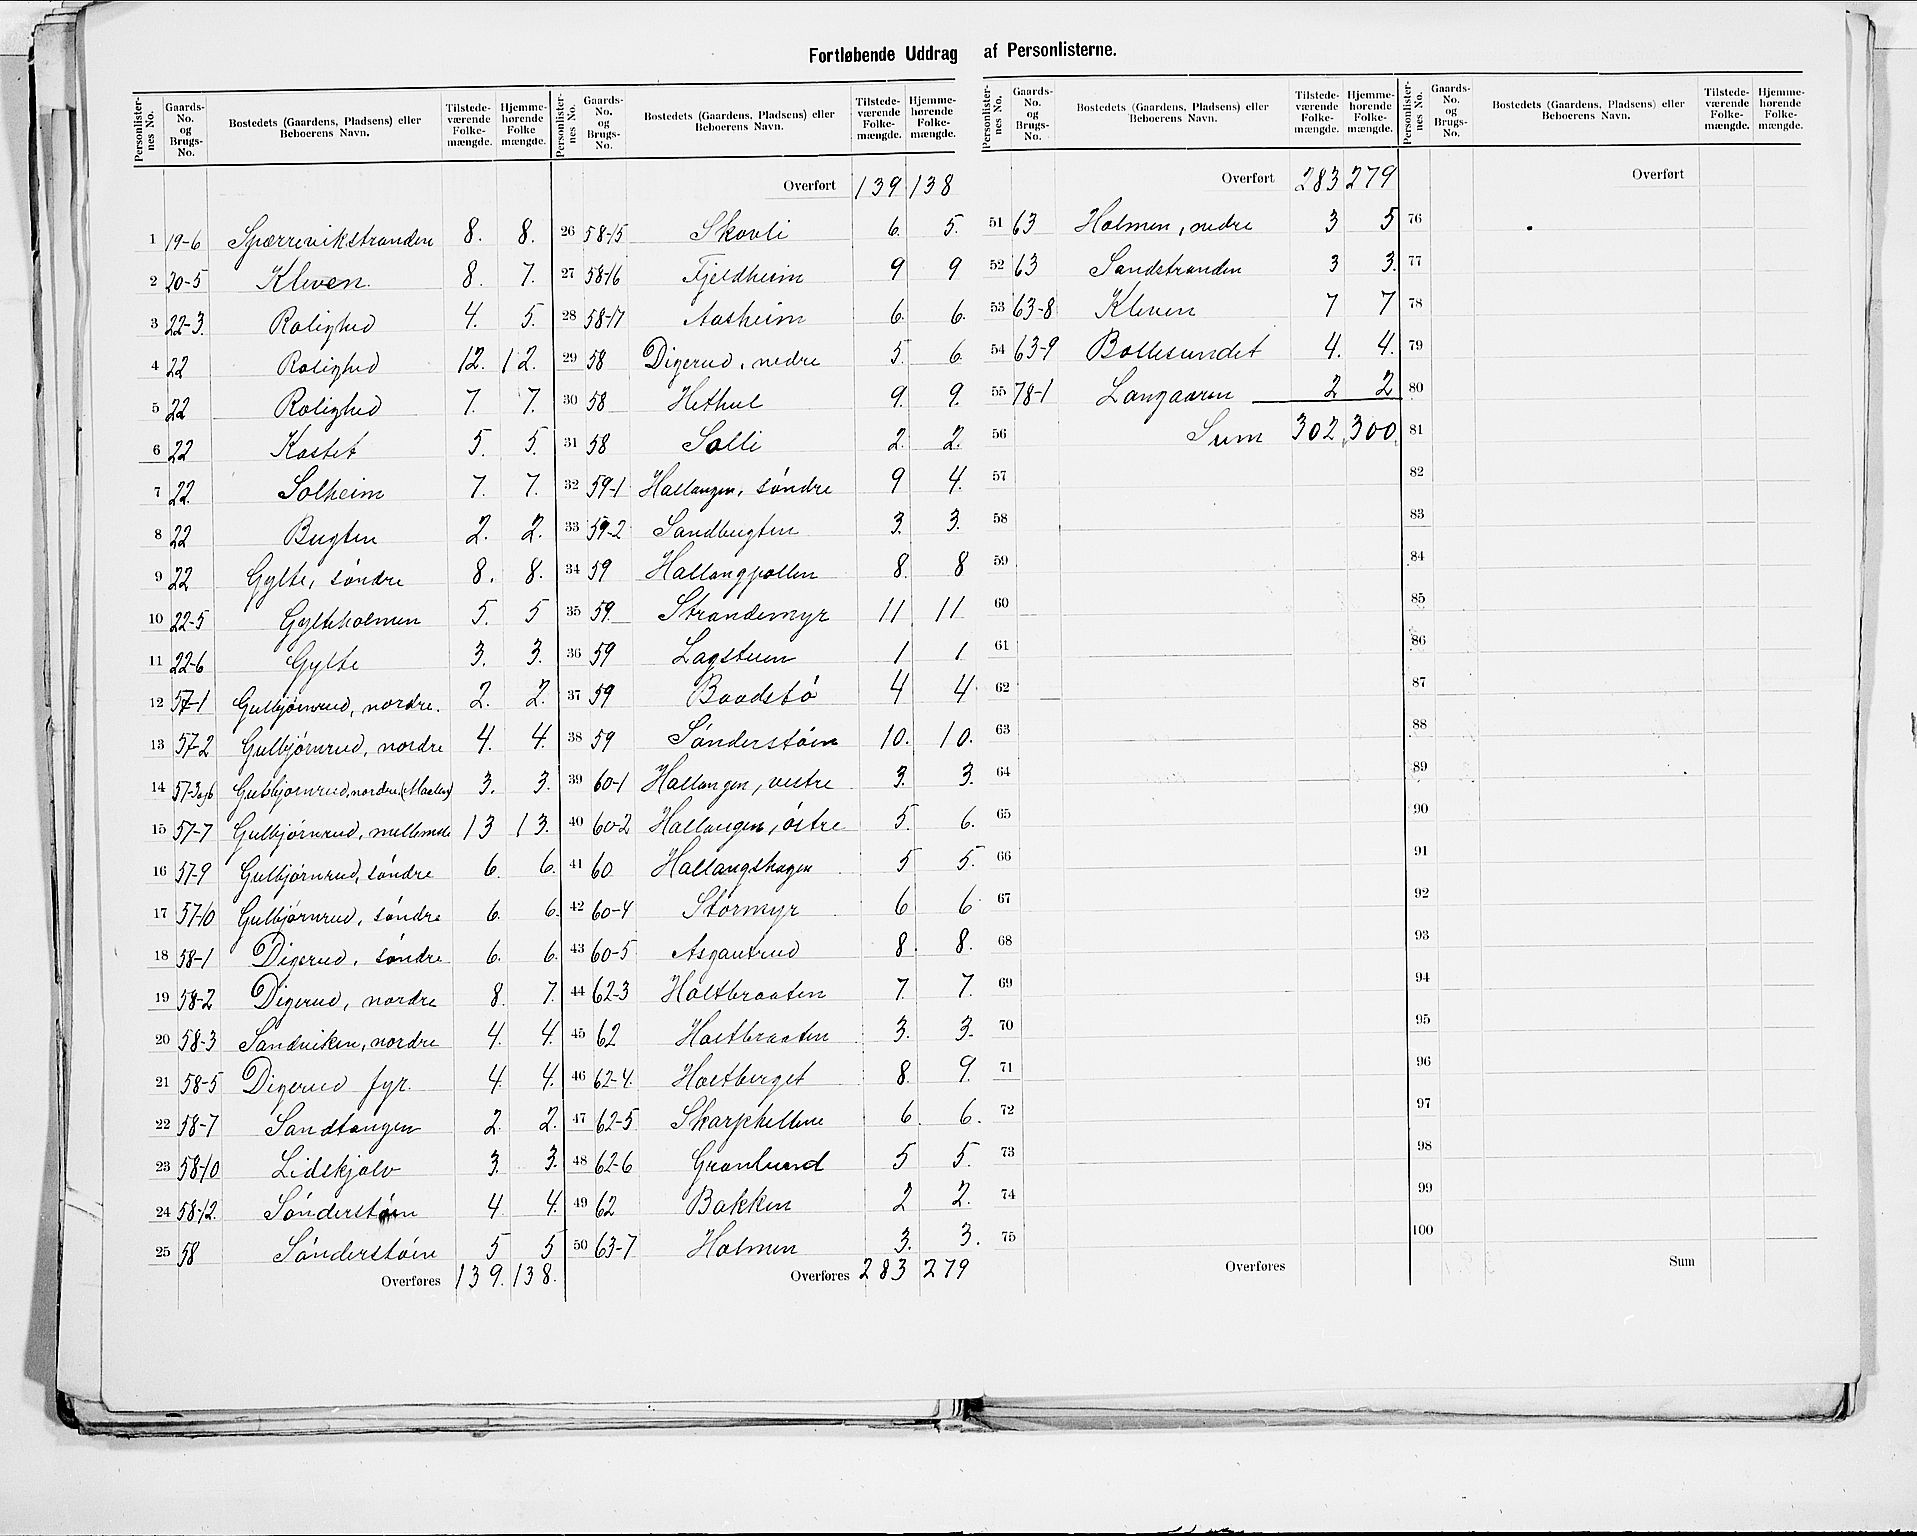 Fortløbende Uddrag af Personlisterne.
Personlister-nes No. Gaards-No. og Brugs-No. Bostedets (Gaardens, Pladsens) eller Beboerens Navn. Tilstede-værende Folke-mængde. Hjemme-hørende Folke mængde.
1 19-6 Spærrevikstranden 8. 8.
2 20-5 Kleven. 8. 7.
3 22-3. Rolighed 4. 5.
4 22 Rolighed 12. 12.
5 22 Rolighed 7. 7.
6 22 Kastet 5. 5.
7 22 Solheim 7. 7.
8 22 Bugten 2. 2.
9 22 Gylte, søndre 8. 8.
10 22-5 Gylteholmen 5. 5
11 22-6 Gylte 3. 3.
12 57-1 Gulbjørnrud, nordre. 2. 2.
13 57-2 Gulbjørnrud, nordre 4. 4.
14 57-3og6 Gulbjørnrud, nordre (Moelen) 3. 3.
15 57-7 Gulbjørnrud, mellemste 13 13.
16 57-9 Gulbjørnrud, søndre 6. 6.
17 57-10 Gulbjørnrud, søndre 6. 6.
18 58-1 Digerud, søndre 6. 6.
19 58-2 Digerud, nordre 8. 7.
20 58-3 Sandviken, nordre 4. 4.
21 58-5 Digerud fyr. 4. 4.
22 58-7 Sandtangen 2. 2.
23 58-10 Lidskjalv 3. 3.
24 58-12. Sønderstøen 4. 4.
25 58 Sønderstøen 5 5
Overføres 139. 138.
Personlister-nes No. Gaards-No. og Brugs-No. Bostedets (Gaardens, Pladsens) eller Beboerens Navn. Tilstede-værende Folke-mængde. Hjemme-hørende Folke-mængde.
Overført 139 138
26 58-15 Skovli 6. 5.
27 58-16 Fjeldheim 9 9
28 58-17 Aasheim 6. 6.
29 58 Digerud, nedre 5. 6.
30 58 Hethul 9. 9.
31 58 Solli 2. 2.
32 59-1 Hallangen, søndre 9 4.
33 59-2 Sandbugten 3. 3.
34 59 Hallangpollen 8. 8
35 59. Strandemyr 11 11
36 59 Lagsteen 1 1
37 59 Baadstø 4 4
38 59 Sønderstøen 10. 10.
39 60-1 Hallangen, vestre 3. 3.
40 60-2 Hallangen, østre 5. 6.
41 60 Hallangshagen 5 5.
42 60-4 Størmyr 6 6
43 60-5 Asgautrud 8. 8.
44 62-3 Holtbraaten 7. 7.
45 62 Holtbraaten 3. 3.
46 62-4. Holtberget 8. 9.
47 62-5 Skarphellene 6. 6.
48 62-6 Granlund 5 5.
49 62 Bakken 2 2.
50 63-7 Holmen 3. 3.
Overføres 283 279
Personlister-nes No. Gaards-No. og Brugs-No. Bostedets (Gaardens, Pladsens) eller Beboerens Navn. Tilstede-værende Folke-mængde. Hjemme-hørende Folke-mængde.
Overført 283 279
51 63 Holmen, nedre 3 5
52 63 Sandstranden 3 3.
53 63-8 Kleven 7 7
54 63-9 Bollesundet 4. 4.
55 78-1 Langaaren 2 2
56 Sum 302 300.
57
58
59
60
61
62
63
64
65
66
67
68
69
70
71
72
73
74
75
Overføres
Personlister-nes No. Gaards-No. og Brugs-No. Bostedets (Gaardens, Pladsens) eller Beboerens Navn. Tilstede-værende Folke-mængde. Hjemme-hørende Folke-mængde.
Overført
76
77
78
79
80
81
82
83
84
85
86
87
88
89
90
91
92
93
94
95
96
97
98
99
100
Sum